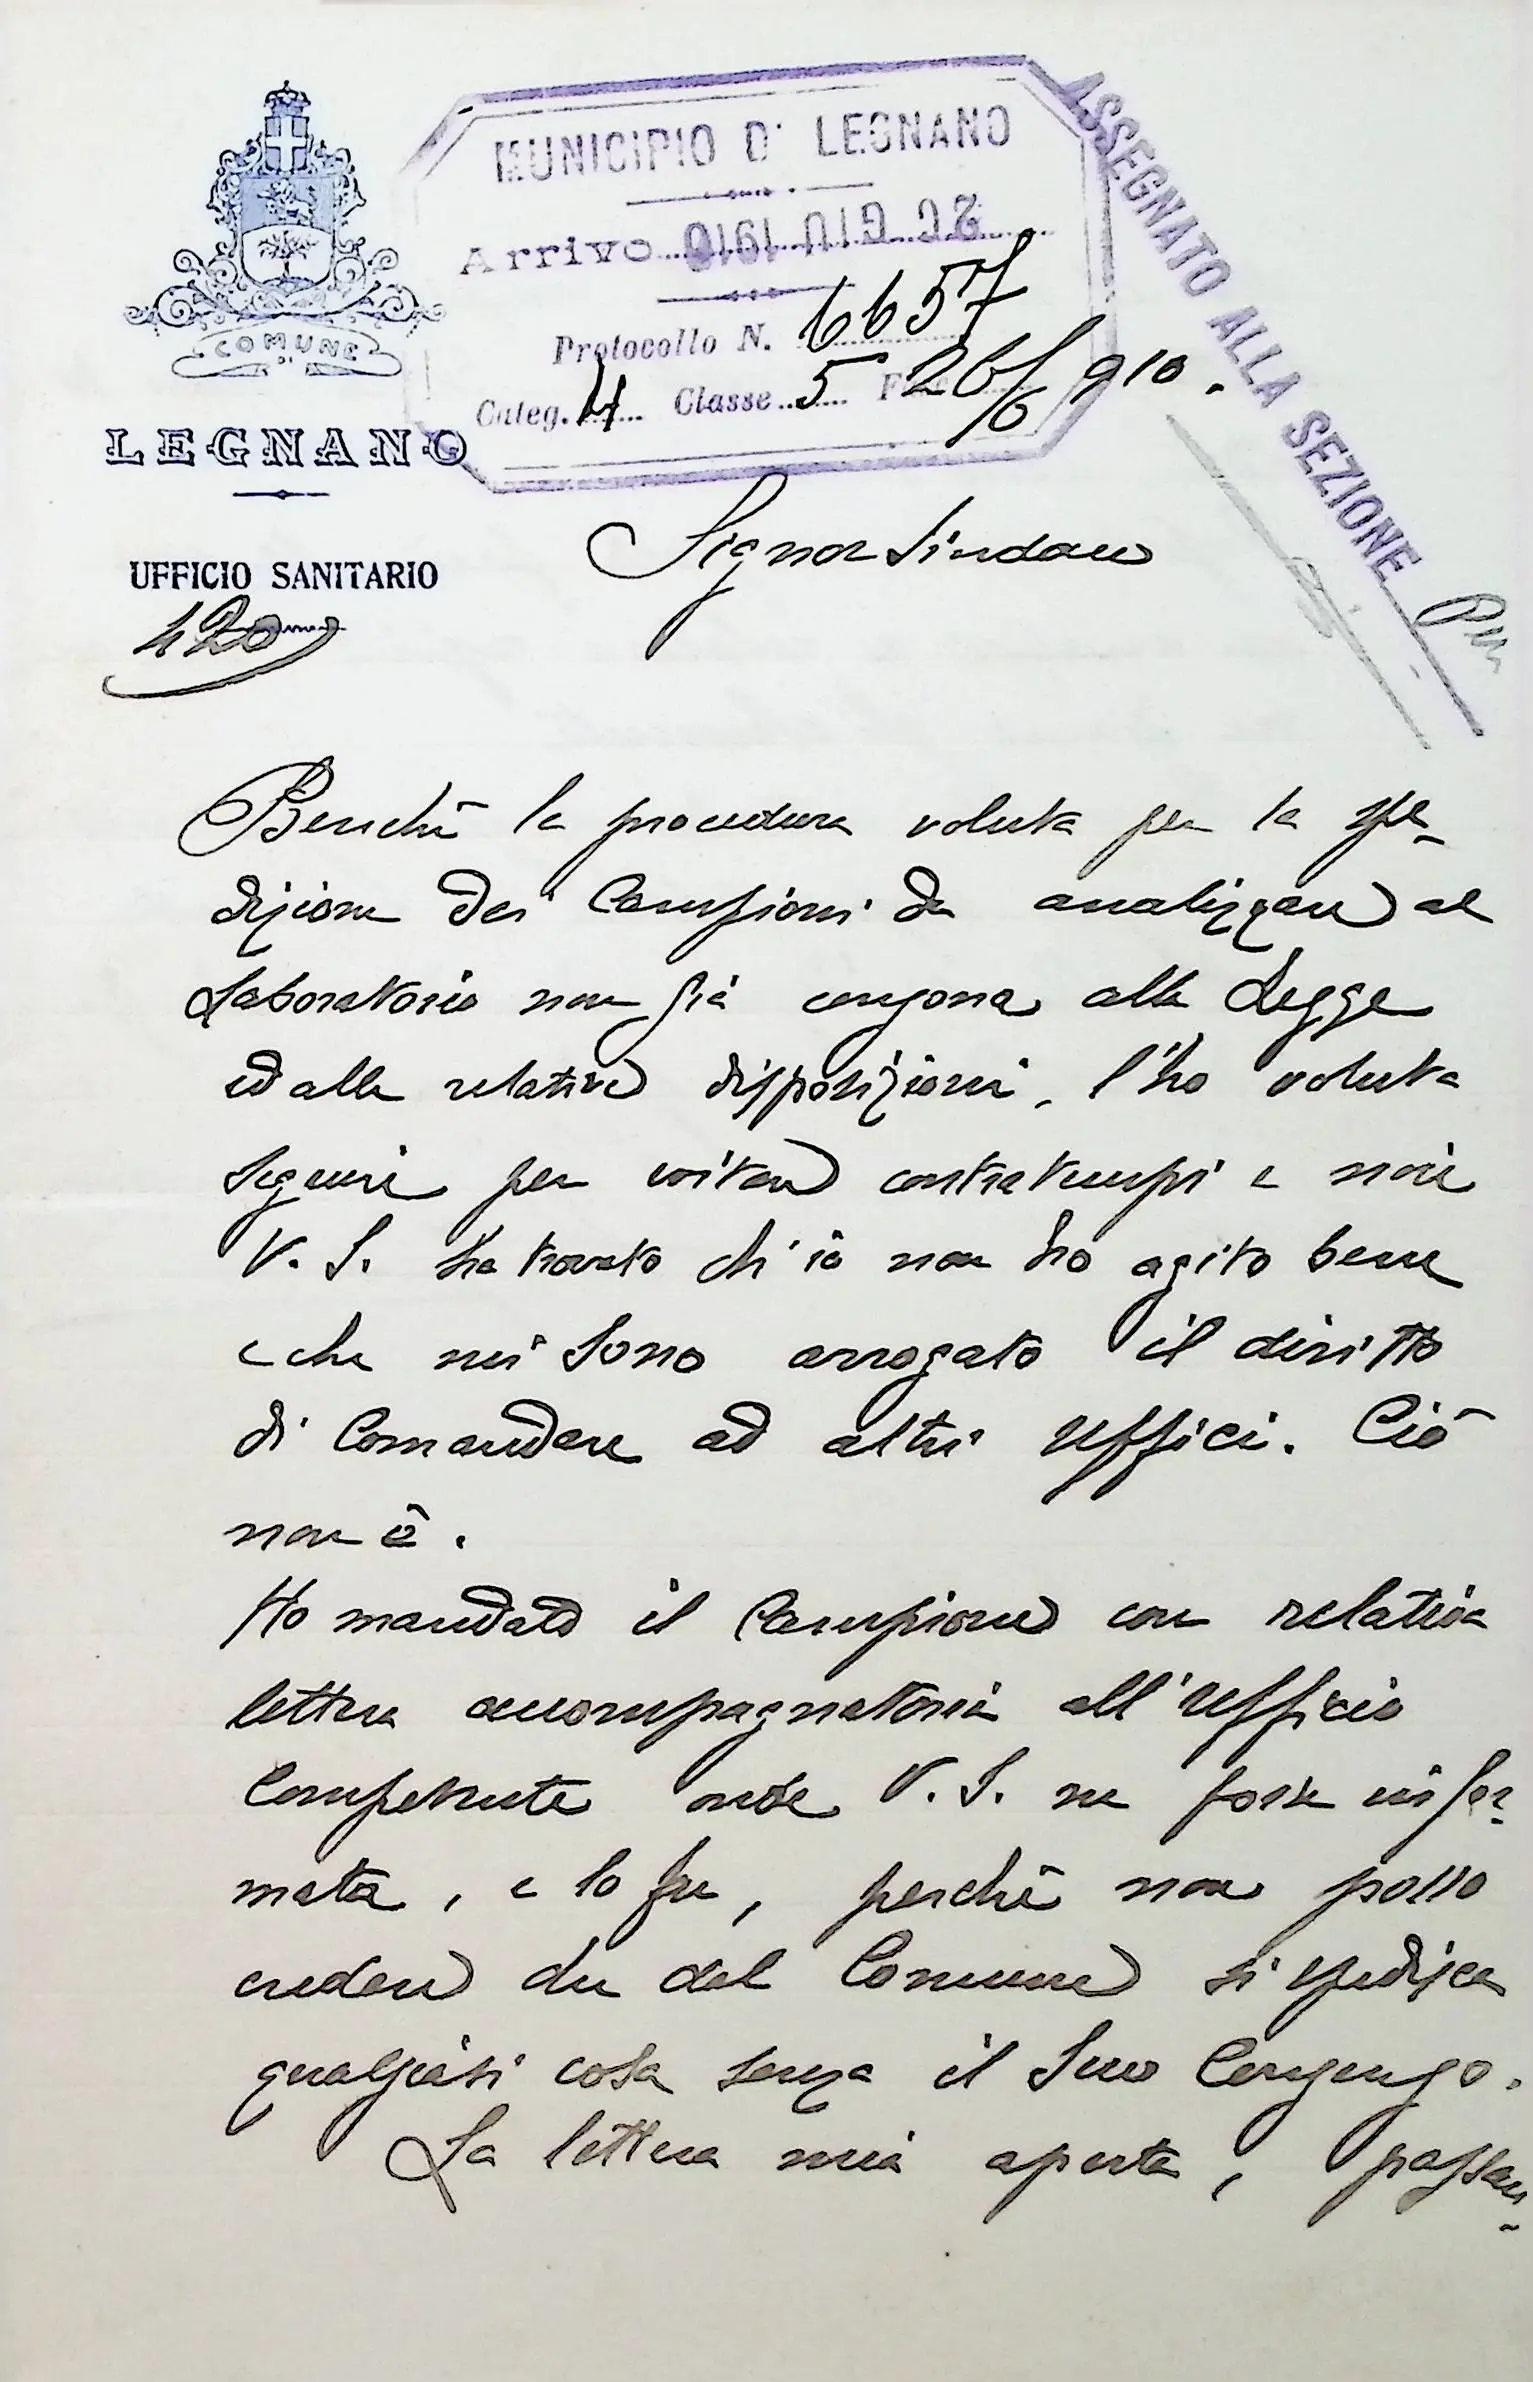 MUNICIPIO D' LEGNANO
Arrivo 26 GIU 1910
Protocollo N. 6657
Categ. 4 Classe 5 26/6 910.
ASSEGNATO ALLA SEZIONE
COMUNE
DI
LEGNANO
UFFICIO SANITARIO
420
Signor Sindaco
Benchè la procedura voluta per la spe-
dizione dei Campioni da analizzare al
Laboratorio non già consona alla Legge
ed alle relative disposizioni, l'ho voluta
seguire per evitare contratempi e
V. S. ha trovato ch'io non ho agito bene
e che mi sono arrogato il diritto
di Comandare ad altri Uffici. Ciò
non è.
Ho mandato il Campione con relativa
lettera accompagnatoria all'Ufficio
Competente onde V. S. ne fosse infor-
mata, e lo fu, perchè non posso
credere che dal Comune si spedisca
qualsiasi cosa senza il Suo
La lettera mia aperta, passan-